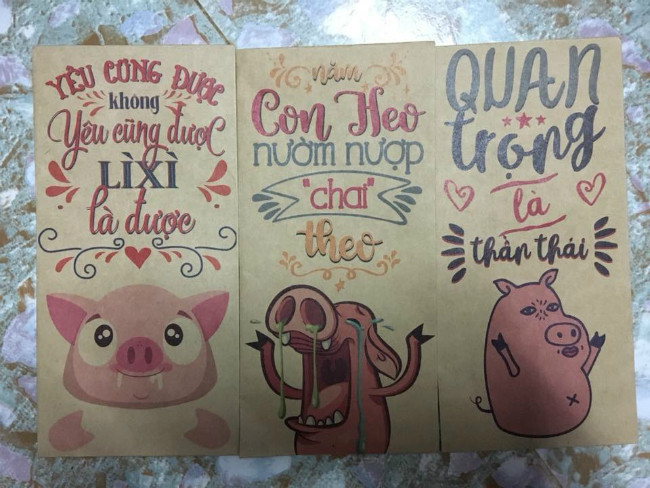 YÊU CŨNG ĐƯỢC
không
Yêu cũng được
LÌXÌ
là được
năm
Con Heo
NƯỜM NƯỢP
"chai"
theo
QUAN
trọng
là
thần thái